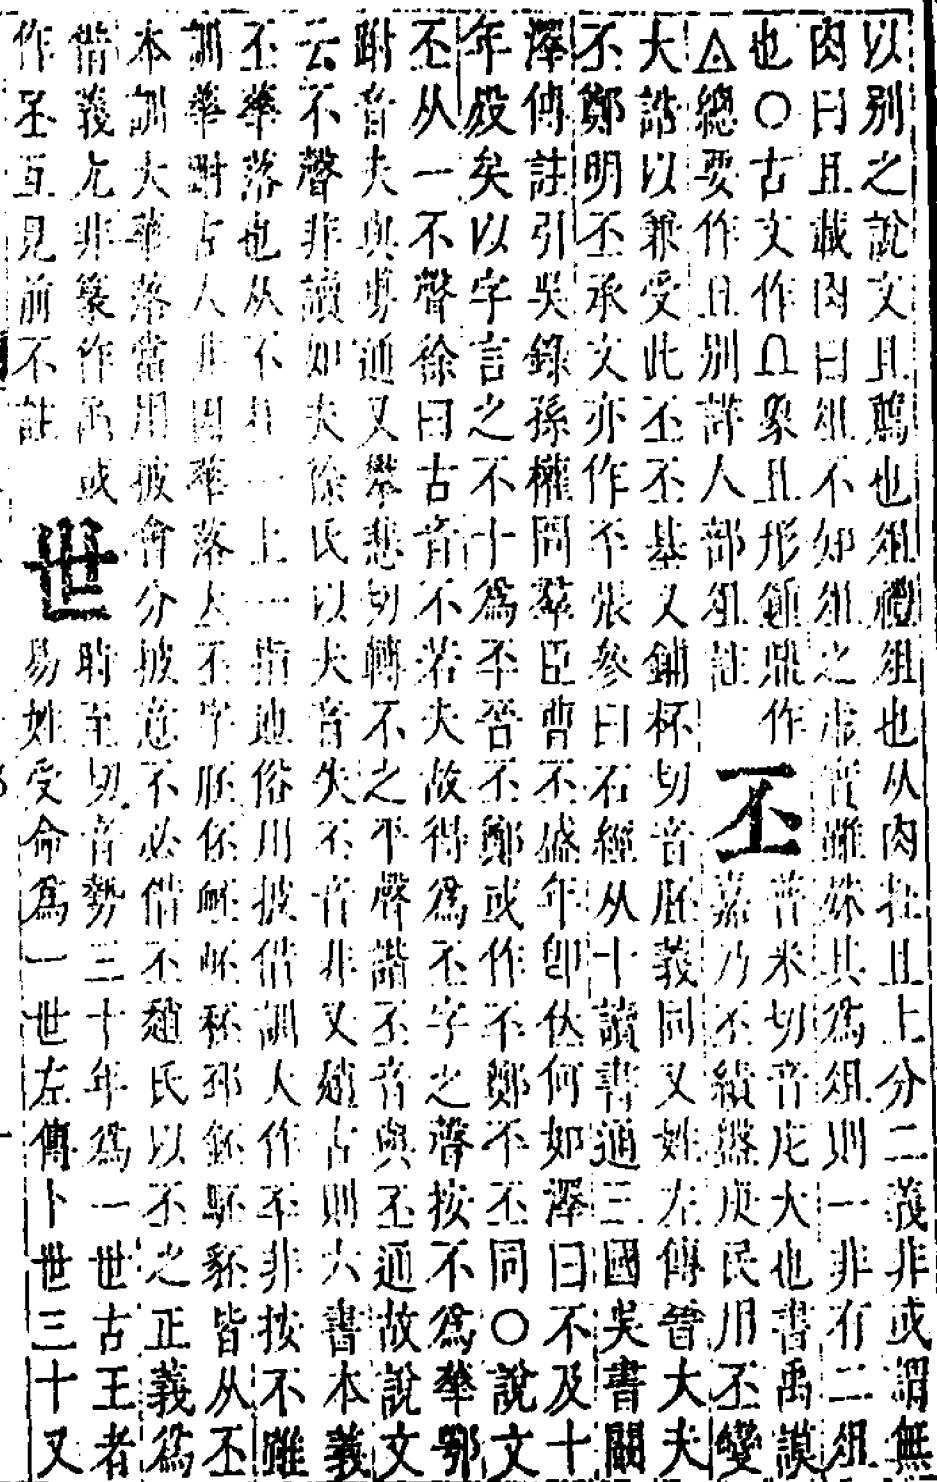 以別之說文且薦也俎禮俎也从肉在且上分二義非或謂無
肉曰且載肉曰俎不知俎之虛實雖殊其為俎則一非有二俎
也○古文作Ω象且形鐘鼎作
△總要作且別詳人部俎註
丕
普米切音庀大也書禹謨
嘉乃丕績盤庚民用丕變
大誥以兼受此丕丕基又鋪杯切音胚義同又姓左傳晉大夫
丕鄭明丕承文亦作不張參曰石經从十讀書通三國吳書闞
澤傳註引吳錄孫權問羣臣曹丕盛年卽位何如澤曰不及十
年殁矣以字言之不十為丕晉丕鄭或作不鄭不丕同○說文
丕从一不聲徐曰古音不若夫故得為不字之聲按不為華鄂
跗音夫與専通又攀悲切轉不之平聲諧丕音與丕通故說文
云不聲非讀如夫徐氏以夫音失不音非又趙古則六書本義
丕華落也从不在一上一指地俗用披借訓人作丕非按不雖
訓華跗古人非因華落大丕字胚伾衃岯秠邳鉟駓豾皆从丕
本訓大華落當用披會分披意不必借丕趙氏以丕之正義為
借義尤非篆作 或
作丕互見前不註
世
時至切音勢三十年為一世古王者
易姓受命為一世左傳卜世三十又